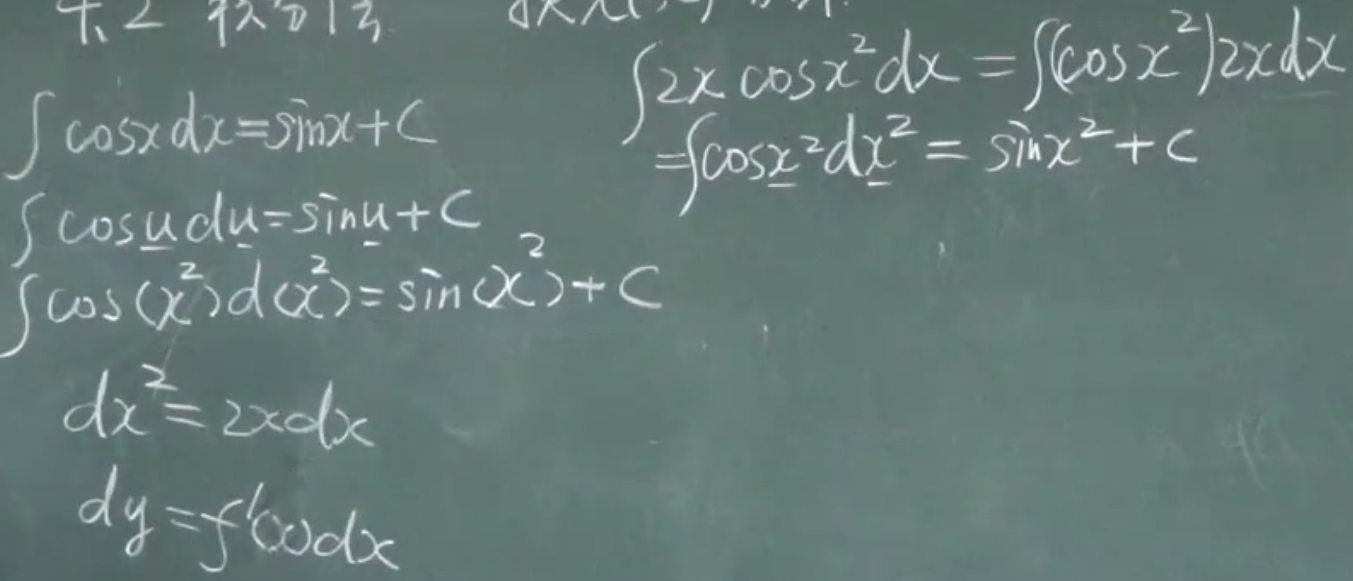 ∫cosxdx=sinx+C
∫cosudu=sinu+C
∫cos(x²)d(x²)=sin(x²)+C
dx²=2xdx
dy=f'(x)dx
∫2x cosx²dx=∫(cosx²)2xdx
=∫cosx²dx²=sinx²+C